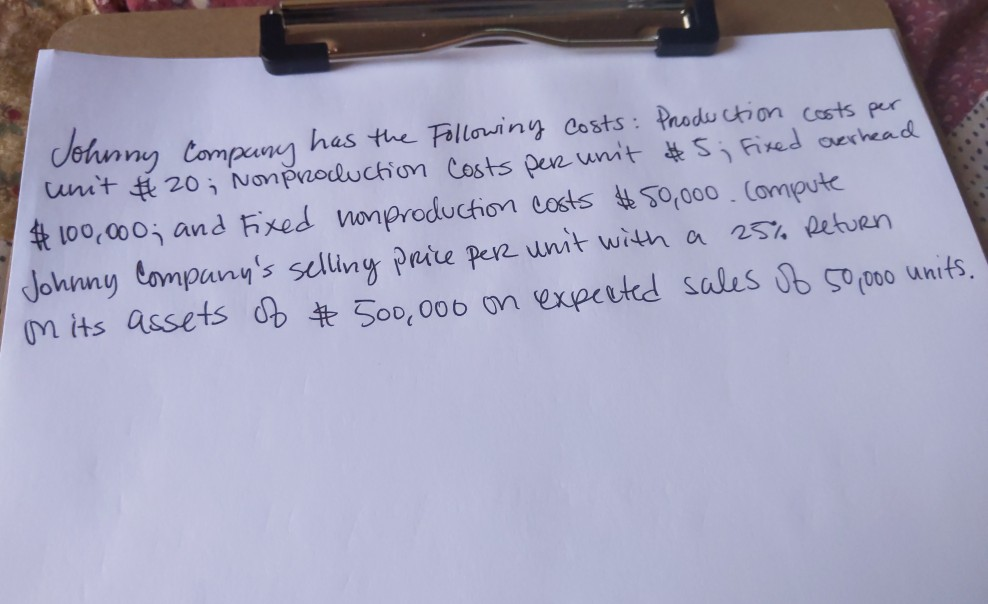 Johnny Company has the Following costs: Production costs per
unit $ 20; Nonproduction Costs per unit $ 5; Fixed overhead
$ 100,000; and Fixed nonproduction costs $ 50,000. Compute
Johnny Company's selling price per unit with a 25% Return
on its assets of $ 500,000 on expected sales of 50,000 units.